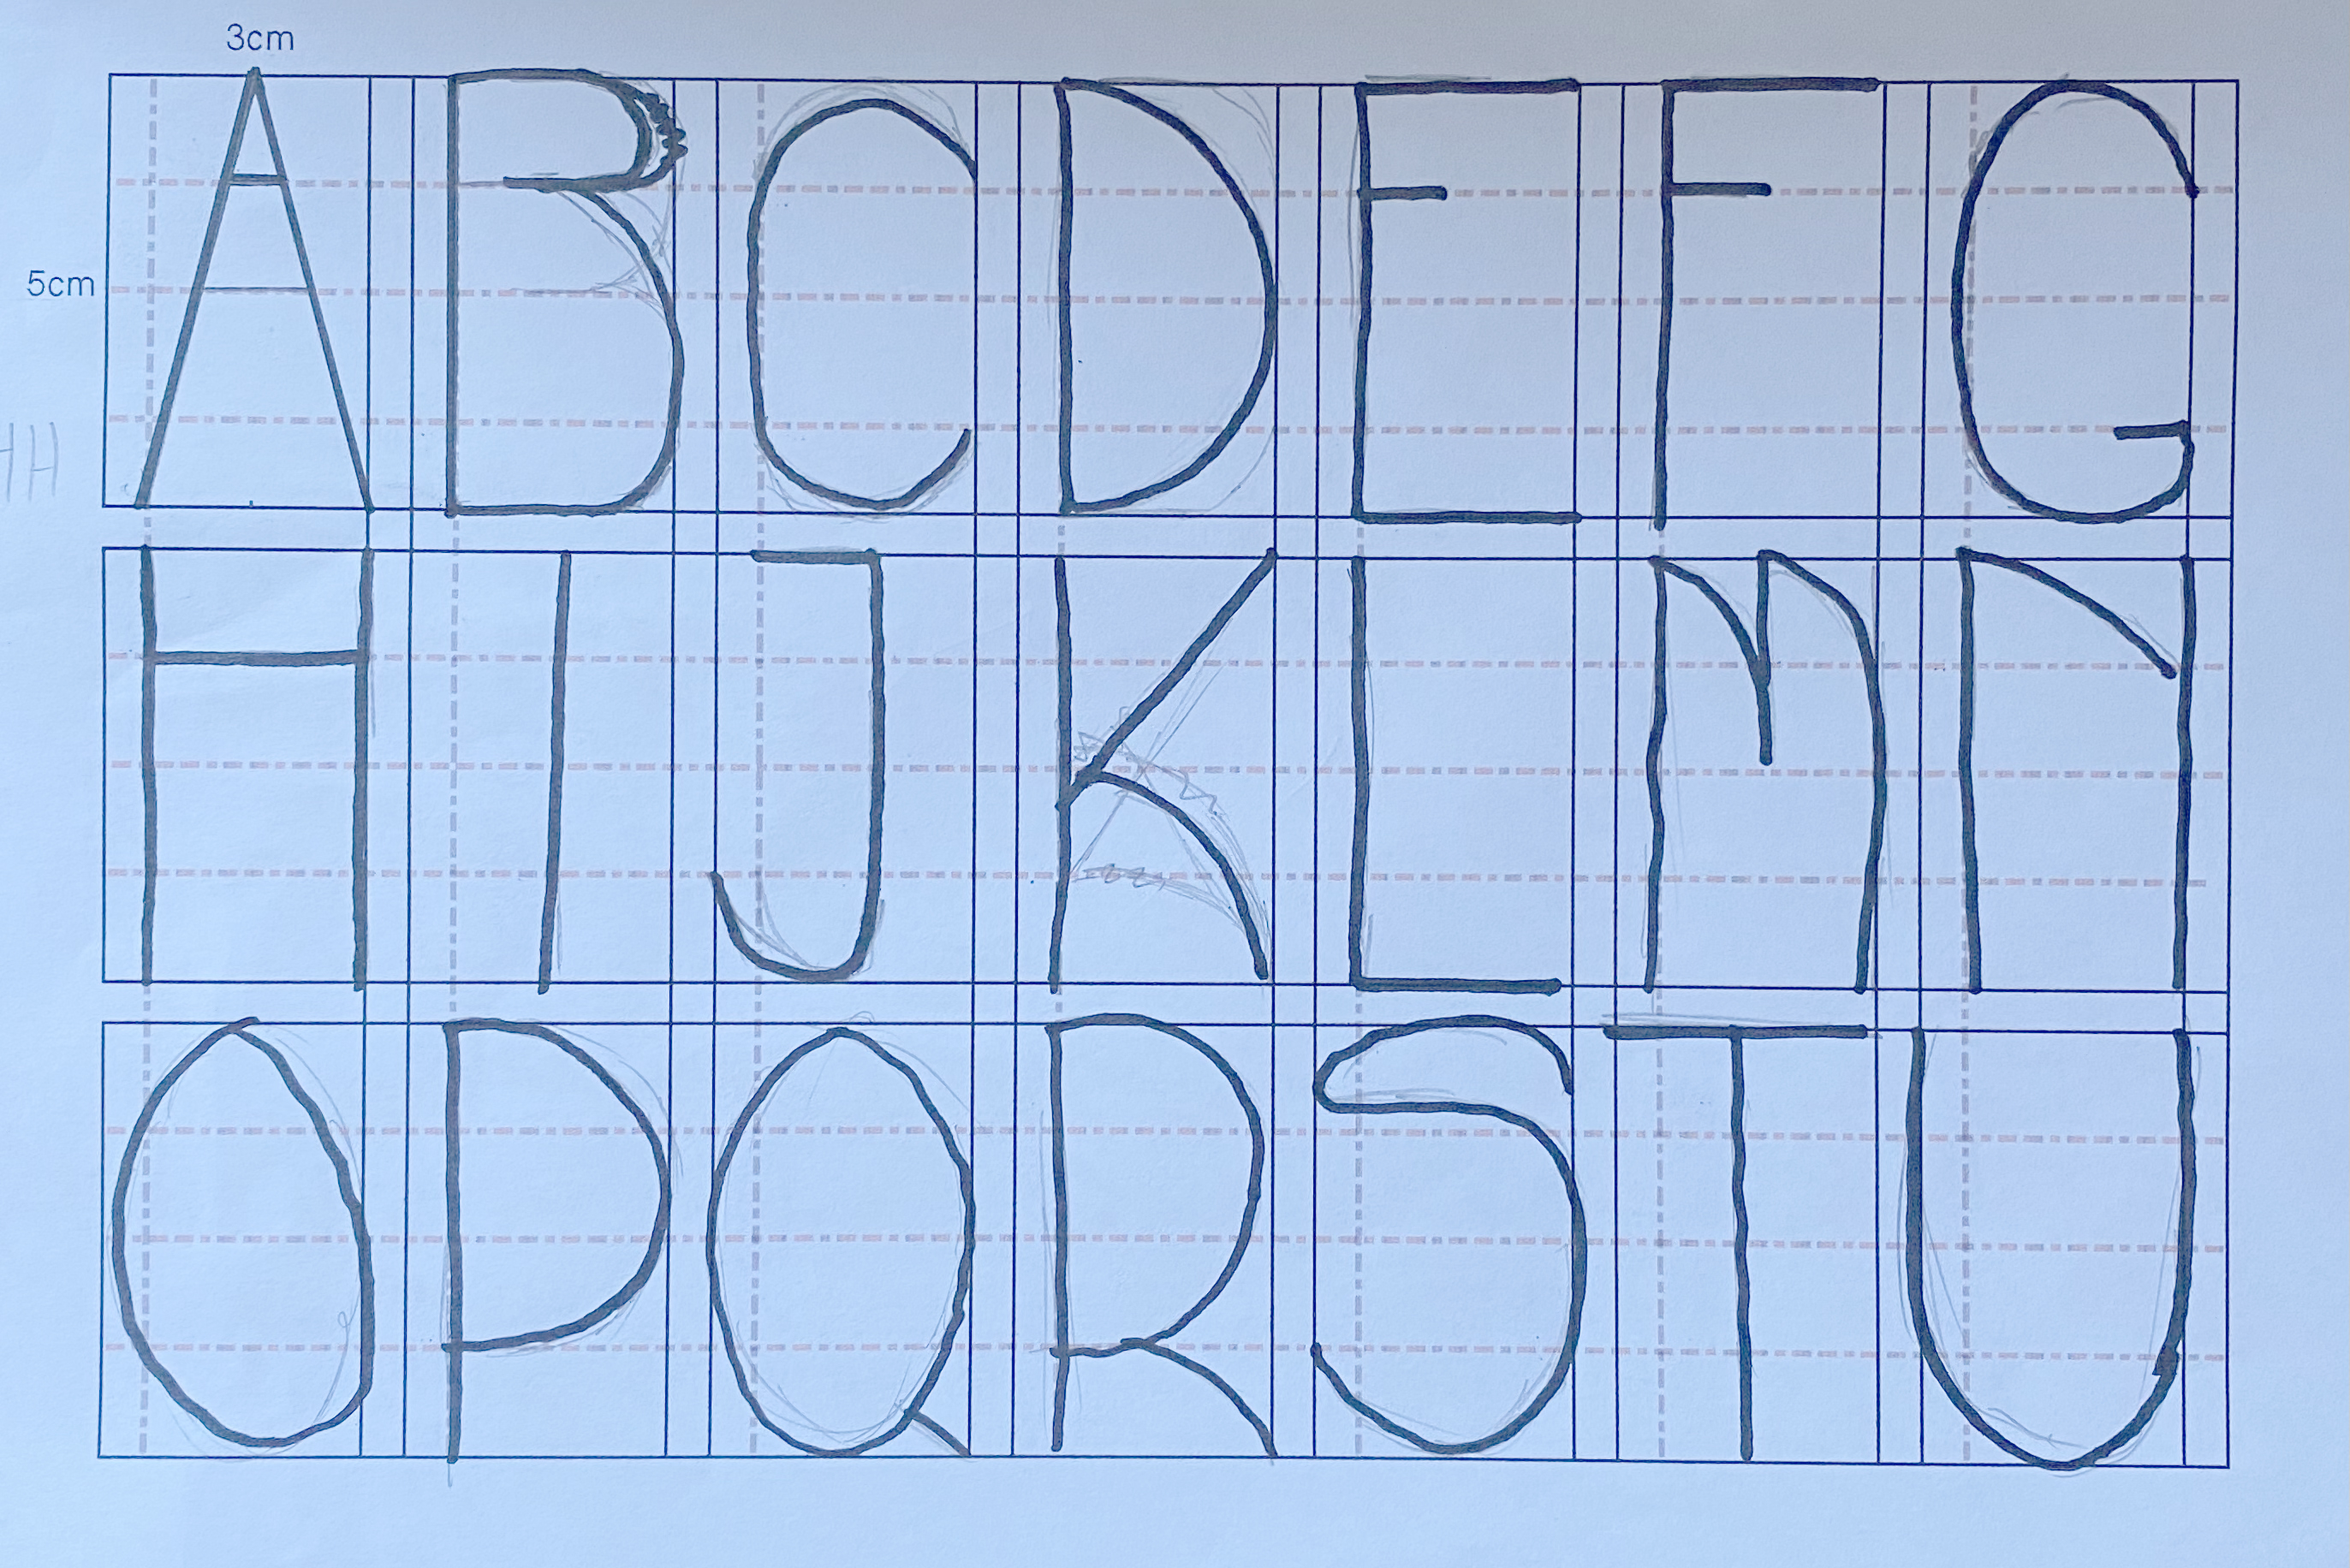 3cm
A B C D E F G
5cm
HH
H I J K L M N
O P Q R S T U